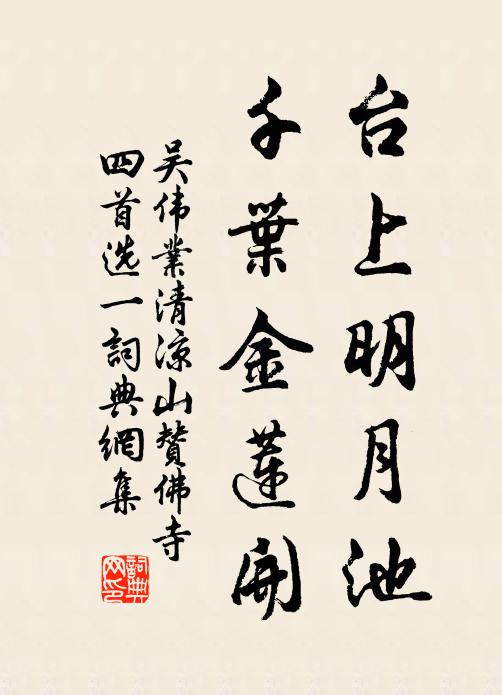 台上明月池
千葉金蓮開
吴伟業清凉山赞佛寺
四首选一詞典網集
詞典
网印